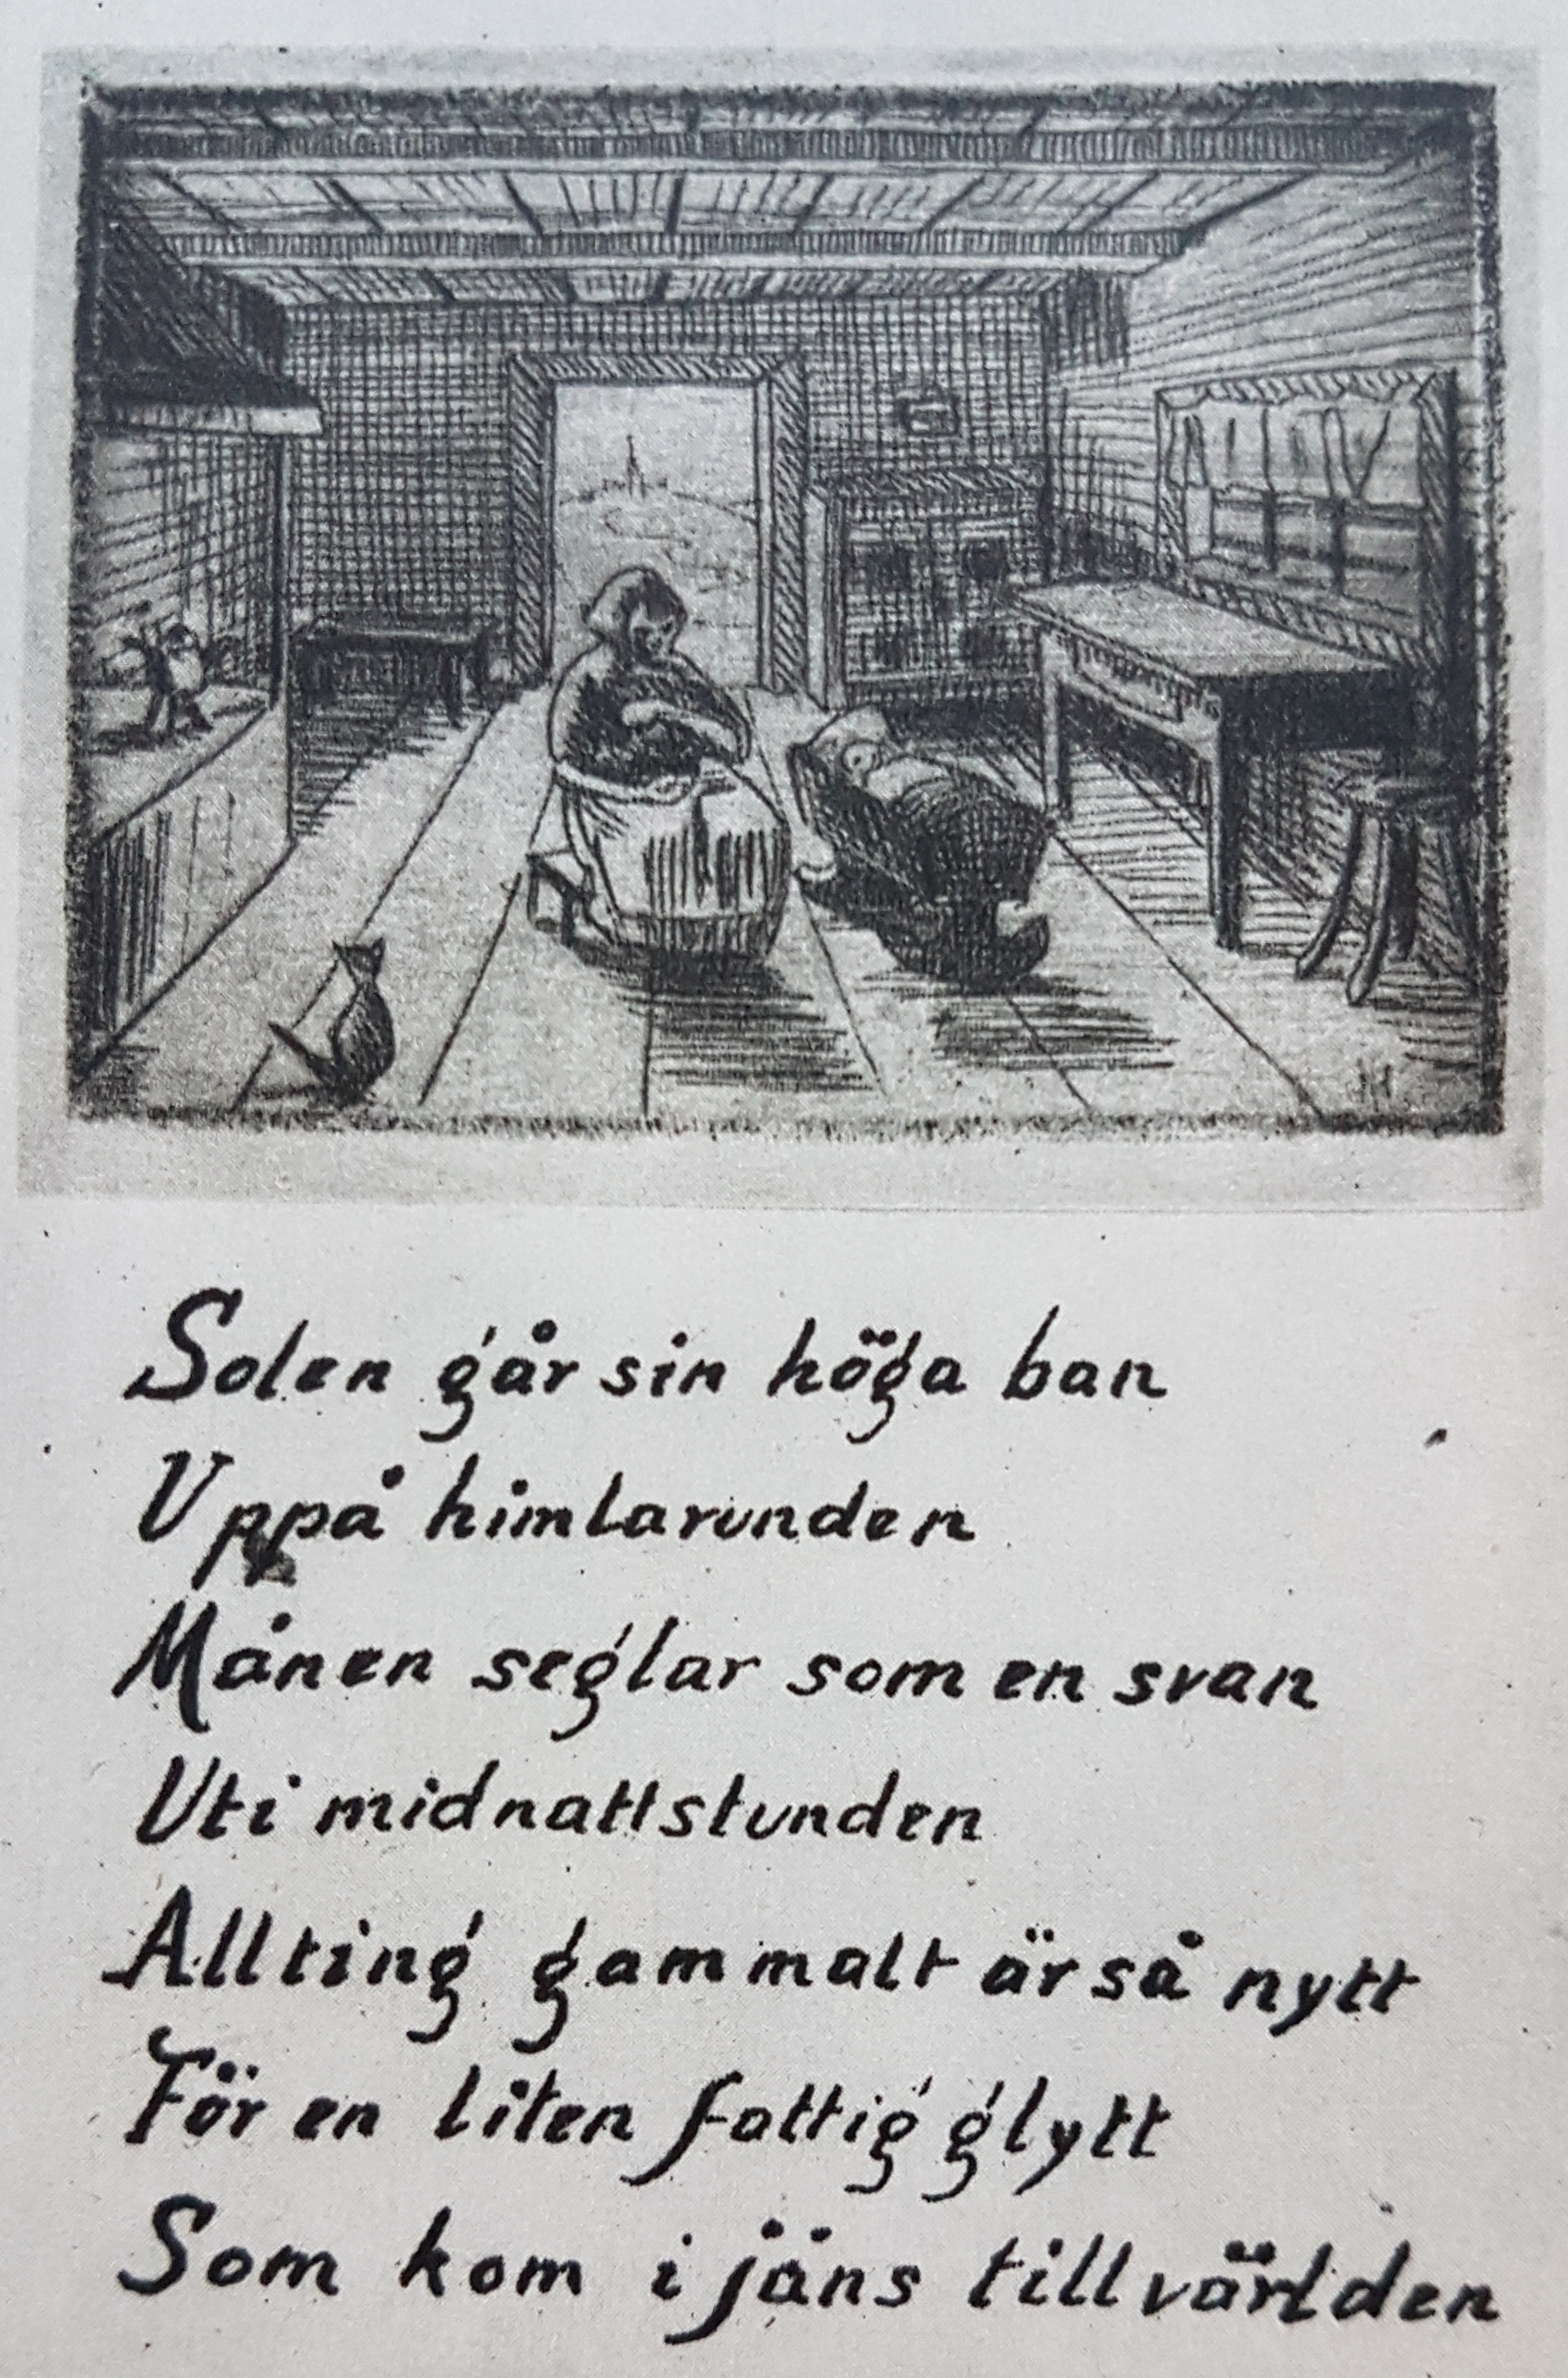 H
Solen går sin höga ban
Uppå himlarunden
Månen seglar som en svan
Uti midnattstunden
Allting gammalt är så nytt
För en liten fattig glytt
Som kom i jåns till världen